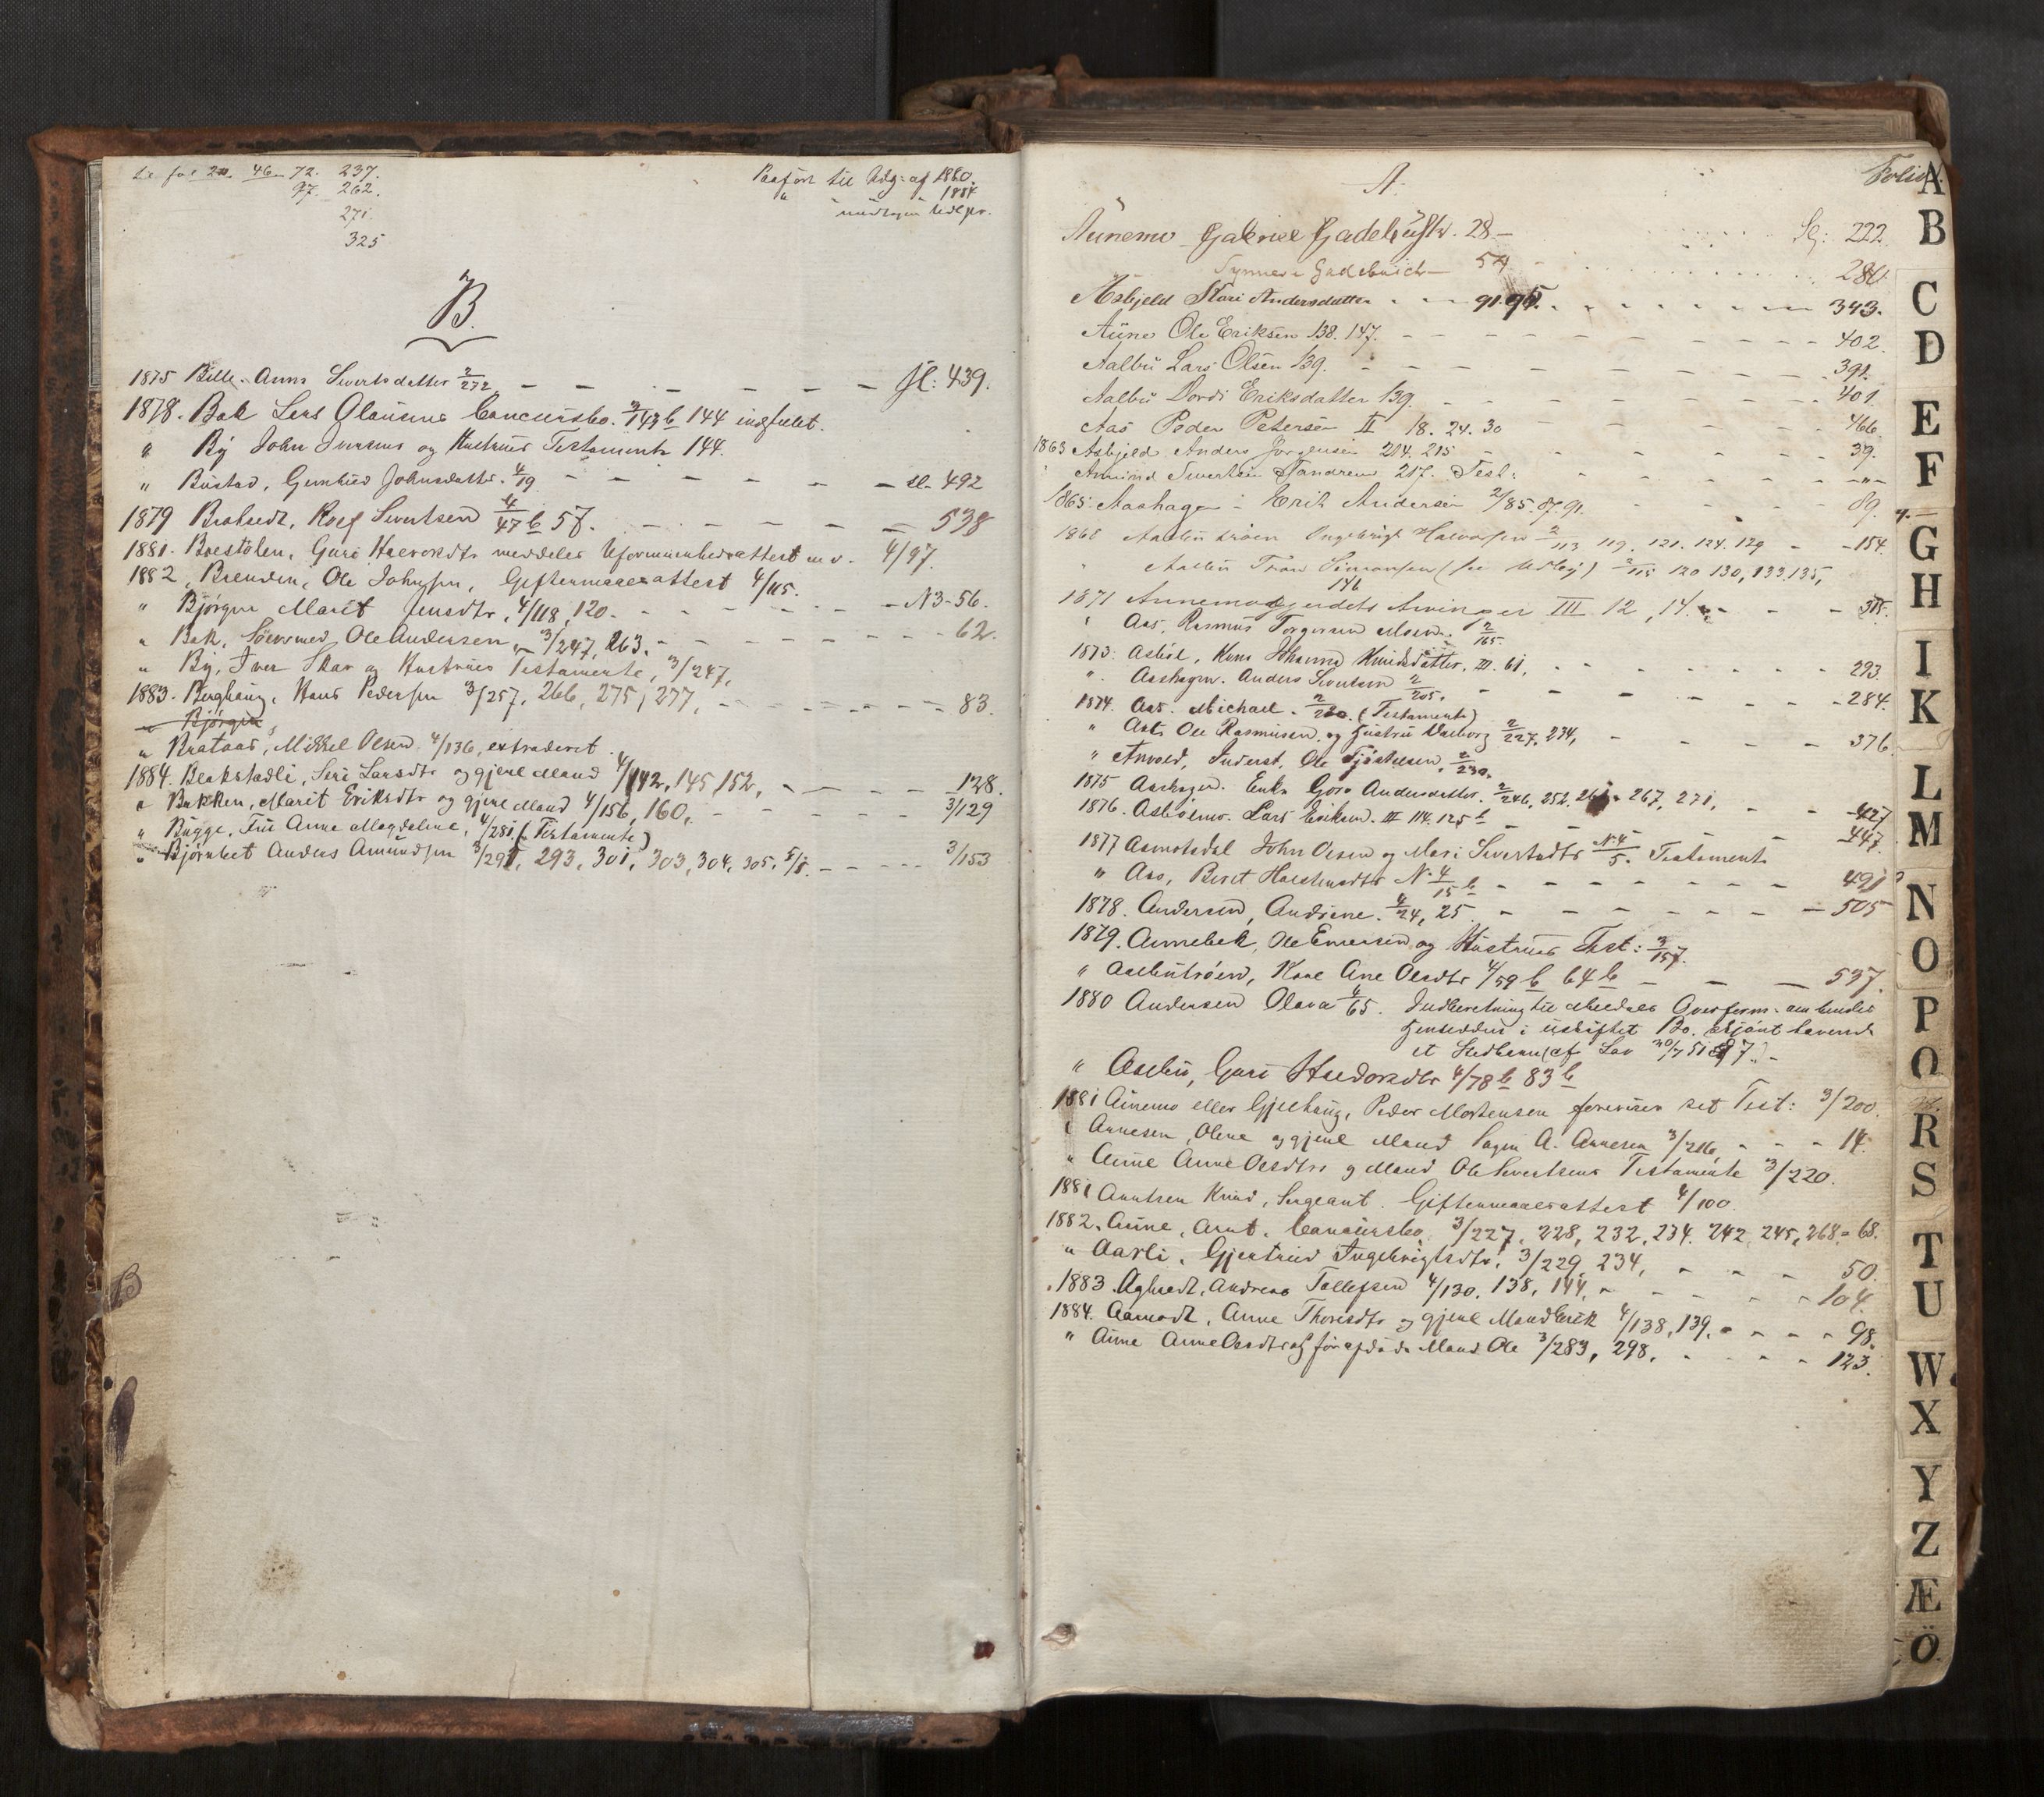 46 72. 237.
97. 262.
271.
325
Paaført til Udg: af 1880.
1884
B.
1875 Bille. Anne Sivertsdatter 2/272 - - - - - - fl: 439.
1878. Bak Lars Olausens Concursbo. 3/143 b 144 indfält.
" By John Jensens og Hustrues Testamente 144.
" Bustad, Gunhild Johnsdatter. 4/19 - - - - - - 492
1879 Bratsedt, Roef Sivertsen 4/47 b 57. - - - - - 538
1881. Boestölen, Guri Halvorsdtr meddeles Uformuenhedsattest m v. 4/97.
1882 Brenden, Ole Johnsen, Giftermaalsattest 4/115.
" Björgen Marit Jensdtr, 4/118, 120. - - - - - N3-56.
" Bak, Ole Andersen, 3/247, 263. - - - - - - 62.
" By, Iver Skar og Hustrues Testamente, 3/247,
1883. Berghaug, Hans Pedersen 3/257, 266, 275, 277, - - - - - 83.
" Björgen
" Brataas, Mikkel Olsen 4/136, extraderet.
1884. Blakstadli, Siri Larsdtr og gjenl Mand 4/142, 145, 152, - - - - 128.
" Bakken, Marit Eriksdtr og gjenl Mand 4/156, 160, - - - - 3/129
" Bügge, Frü Anne Magdalene, 4/281 (Testamente)
" Björnbet Anders Amundsen 3/291, 293, 301, 303, 304, 305, 5/1. - - - - 3/153
A.
Folio
Aunemo Gabriel Gadebusch. 28 - 222.
Gadebusch 54 280.
Asbjeld Kari Andersdatter - - 91. 95. 343.
Aune Ole Eriksen 138. 147. - - - - - - 402.
Aalbu Lars Olsen 139. - - - - - - - 391.
Aalbu Dordi Eriksdatter 139. - - - - - - 401.
Aas Peder Petersen II 18. 24. 30 - - - - - 466.
1863 Asbjeld Anders Jörgensen 214. 215 - - - - - 39.
" Amund Sivertsen 217. Test: - - - - -
1865 Aashagen - Erik Andersen 2/85. 87. 91. - - - - 89.
1868 Aalbu Ingebrigt Halvorsen 2/113 119. 121. 124. 129 - - 154
" Aalbu Tron Simonsen 2/115 120 130, 133. 135,
146
1871 III 12, 14. - - - 315.
" Aas, Rasmus Torgersen Moen. 2/165.
1873. Johanne III. 61, - - - - 293.
" Aashagen. Anders Sivertsen 2/205. - - - - - 284.
1874. Aas. Michael. 2/220. (Testament)
" Aas, Ole Rasmusen og Hustru 2/227, 234, - - - - 376
" Ole 2/230.
1875 Aashagen. Enke Goro Andersdatter. 2/246, 252, 261. 267, 271, - - 427
1876. Lars Eriksen. III 114. 125 b - - - - - 447.
1877 Aamotsdal John Olsen og Mari Sivertsdtr N. 4/5. Testament
" Aas, Beret N. 4/15 b - - - - - - 491
1878. Andersen, Andrine. 4/24, 25 - - - - - - 505
1879. Annebek, Ole Einersen og Hustrues Test: 3/157.
" Aalbutröen, Kari Ane Olsdtr 4/59 b 64 b - - - 537.
1880 Andersen Olava 4/65. Indberetning til Meldals Overform. om hendes
Henseedden i uskiftet Bo. skjönt havende
et Stedbarn (cf Lov 30/7 51 § 7). -
" Aalbu, Guri Haldorsdtr 4/78 b 83 b
1881 Aunemo eller Gjelhaug, Peder Mortensen foreviser sit Test: 3/200.
" Arnesen, Olene og gjenl Mand A. Arnesen 3/216, - - - 14.
" Aune Anne Olsdtr og Mand Ole Sivertsens Testamente 3/220.
1881 Arntsen Knud, Sergeant. Giftermaalsattest 4/100.
1882. Aune, Arnt. Concursbo 3/227, 228, 232, 234. 242. 245, 268. - 68.
" Aarli, Gjertrud Ingebrigtsdtr, 3/229, 234, - - - - 50.
1883 Aglsedt, Andreas Tollefsen 4/130, 138, 144, - - - - 104.
1884. Aamodt, Anne Thoresdtr og gjenl Mand Erik 4/138, 139. - - - - 98.
" Aune Anne Olsdtr og förafdöde Mand Ole 3/283, 298, - - - - 123.
A
B
C
D
E
F
G
H
I
K
L
M
N
O
P
Q
R
S
T
U
W
X
Y
Z
Æ
Ö